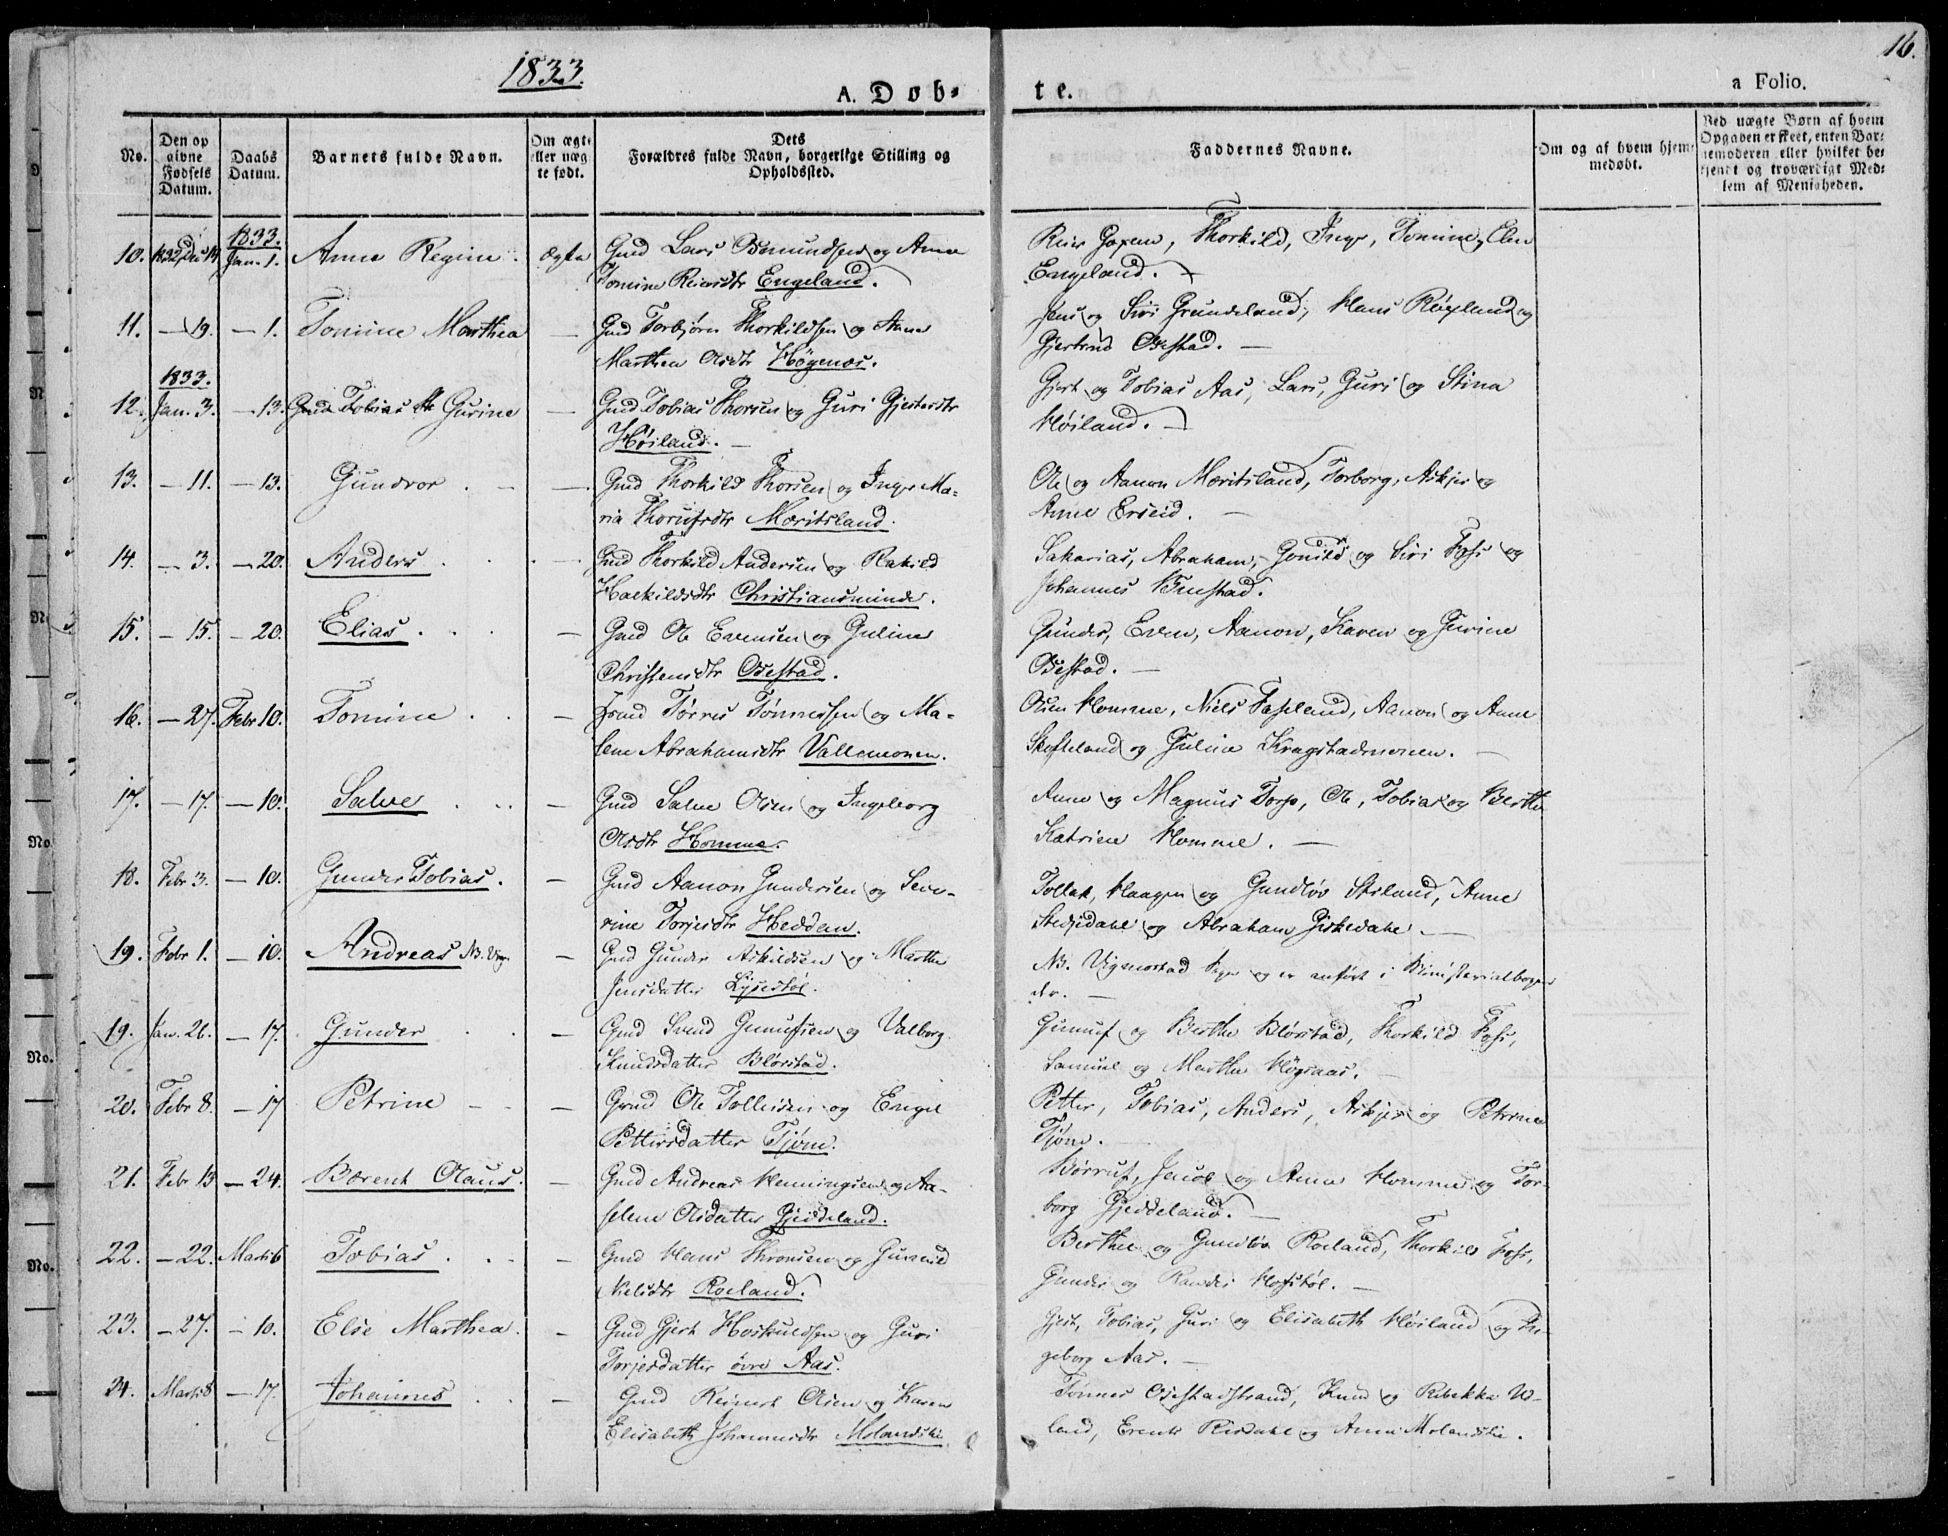 1833.
16.
A. Dob-
te.
a Folio.
No.
Den op
givne
Fødsels
Datum.
Daabs
Datum.
Barnets fulde Navn.
Om ægte
eller uæg
te født.
Dets
Forældres fulde Navn, borgerlige Stilling og
Opholdssted.
Faddernes Navne.
Om og af hvem hjem-
medøbt.
Ved uægte Børn af hvem
Opgaven er skeet, enten Bar-
nemoderen eller hvilket be-
kjendt og troværdigt Med-
lem af Menigheden.
1833.
10. 1832 Dec 14 Jan. 1. Anne Regine. ægte Gmd Lars Osmundsen og Anne
Tomine Reiersdtr Engeland.
Reier Thorkild, Inge, Tomine, Elen
Engeland.
11. - 19. - 1. Tomine Marthea - Gmd Torbjørn Thorkildsen og Anne
Marthea Olsdtr Høgenæs.
Jens og Siri Grundeland, Hans Røyland og
Gjertrud Obestad.
1833.
12. Jan. 3. - 13. Gurine - Gmd Tobias Thorsen og Guri Gjertsdtr
Høiland.
Gjert og Tobias Aas, Lars, Guri og Stina
Høiland.
13. - 11. - 13. Gundvor - Gmd Thorkild Thorsen og Inger Ma-
ria Moritsland.
Ole og Aanon Moritsland, Torborg, Askjer og
Anne Erseid.
14. - 3. - 20. Anders - Gmd Thorkild Andersen og Rakild
Christiansminde.
Sakarias, Abraham, Gonild og Siri Foss og
Johannes
15. - 15. - 20. Elias. - Gmd Ole Evensen og Guline
Christensdtr Obestad.
Gunder, Even, Aanon, Karen og Gurine
Obestad.
16. - 27. Febr 10. Tomine - Tørres Tønnessen og Ma-
lene Abrahamsdtr Vallemonen.
Osen Homme, Niels Fasseland, Aanon og Anne
Skofteland og Guline Kragstadmonen.
17. - 17. - 10. Salve - Gmd Salve Olsen og Ingeborg
Olsdtr Homme.
Anne og Magnus Torp, Ole, Tobias og Berthe
Katrine Homme.
18. Febr 3. - 10. Gunder Tobias. - Gmd Aanon Gundersen og Seve-
rine Torjesdtr Heddan.
Tollak, Haagen og Gundløv Stiland, Anne
og Abraham Giskedahl
19. Febr 1. - 10. Andreas NB. Vigm. - Gmd Gunder Askildsen og Marthe
Jensdatter Lysestøl.
NB. Vigmostad og er anført i Ministerialbogen
der.
19. Jan. 26. - 17. Gunder - Gmd Svend Gunufsen og Valborg
Knudsdatter Blørstad.
Gunuf og Berthe Blørstad, Thorkild Foss,
Samuel og Marthe Høgsaas.
20. Febr 8. - 17 Petrine - Gmd Ole Tollefsen og Engel
Pettersdatter Tjøm.
Petter, Tobias, Anders, Askjer og Petrine
Tjøm.
21. Febr 13 - 24. Bærent Olaus. - Gmd Andreas Henningsen og Aa-
selene Olsdatter Gjeddeland.
Børruf, Jacob og Anne Homme og Tor-
borg Gjeddeland.
22. - 22. Marti 6 Tobias. - Gmd Hans Thronsen og Gunnild
Nielsdtr Roeland.
Berthe og Gundløv Roeland, Thorkild Foss,
Gunder og Randei
23. - 27. - 10. Else Marthea. - Gmd Gjert Hoskuldsen og Guri
Torjesdatter øvre Aas.
Gjert, Tobias, Guri og Elisabeth Høiland og In-
geborg Aas.
24. Marti 8 - 17. Johannes - Gmd Reinert Olsen og Karen
Elisabeth Johannesdtr Molandslie
Tønnes Obestadstrand, Knud og Rebekka U-
land, Erenst Risdahl og Anne Molandslie.